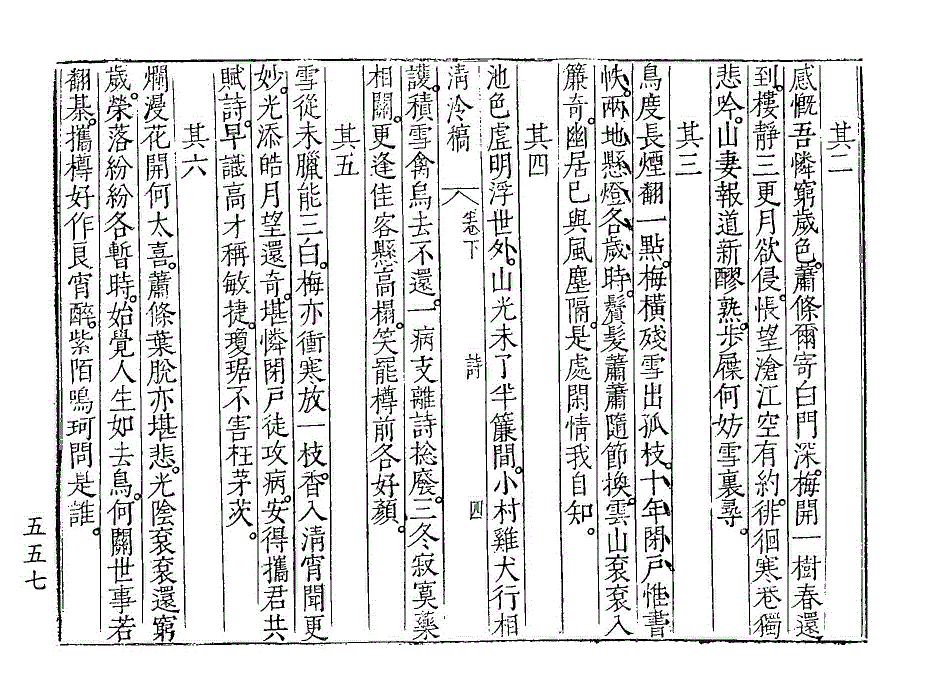 其二
感慨吾憐窮歲色。蕭條爾寄白門深。梅開一樹春還
到。樓靜三更月欲侵。悵望滄江空有約。徘徊寒巷獨
悲吟。山妻報道新醪熟。步屧何妨雪裏尋。
其三
鳥度長煙翻一點。梅橫殘雪出孤枝。十年閉戶惟書
帙。兩地懸燈各歲時。鬢髮蕭蕭隨節換。雲山袞袞入
簾奇。幽居已與風塵隔。是處閑情我自知。
其四
池色虛明浮世外。山光未了半簾間。小村雞犬行相
清冷稿 卷下 詩 四
護。積雪禽鳥去不還。一病支離詩捴廢。三冬寂寞藥
相關。更逢佳客懸高榻。笑罷樽前各好顏。
其五
雪從未臘能三白。梅亦衝寒放一枝。香入清宵聞更
妙。光添皓月望還奇。堪憐閉戶徒攻病。安得攜君共
賦詩。早識高才稱敏捷。瓊琚不害枉茅茨。
其六
爛漫花開何太喜。蕭條葉脫亦堪悲。光陰袞袞還窮
歲。榮落紛紛各暫時。始覺人生如去鳥。何關世事若
翻棊。攜樽好作良宵醉。紫陌鳴珂問是誰。
五五七